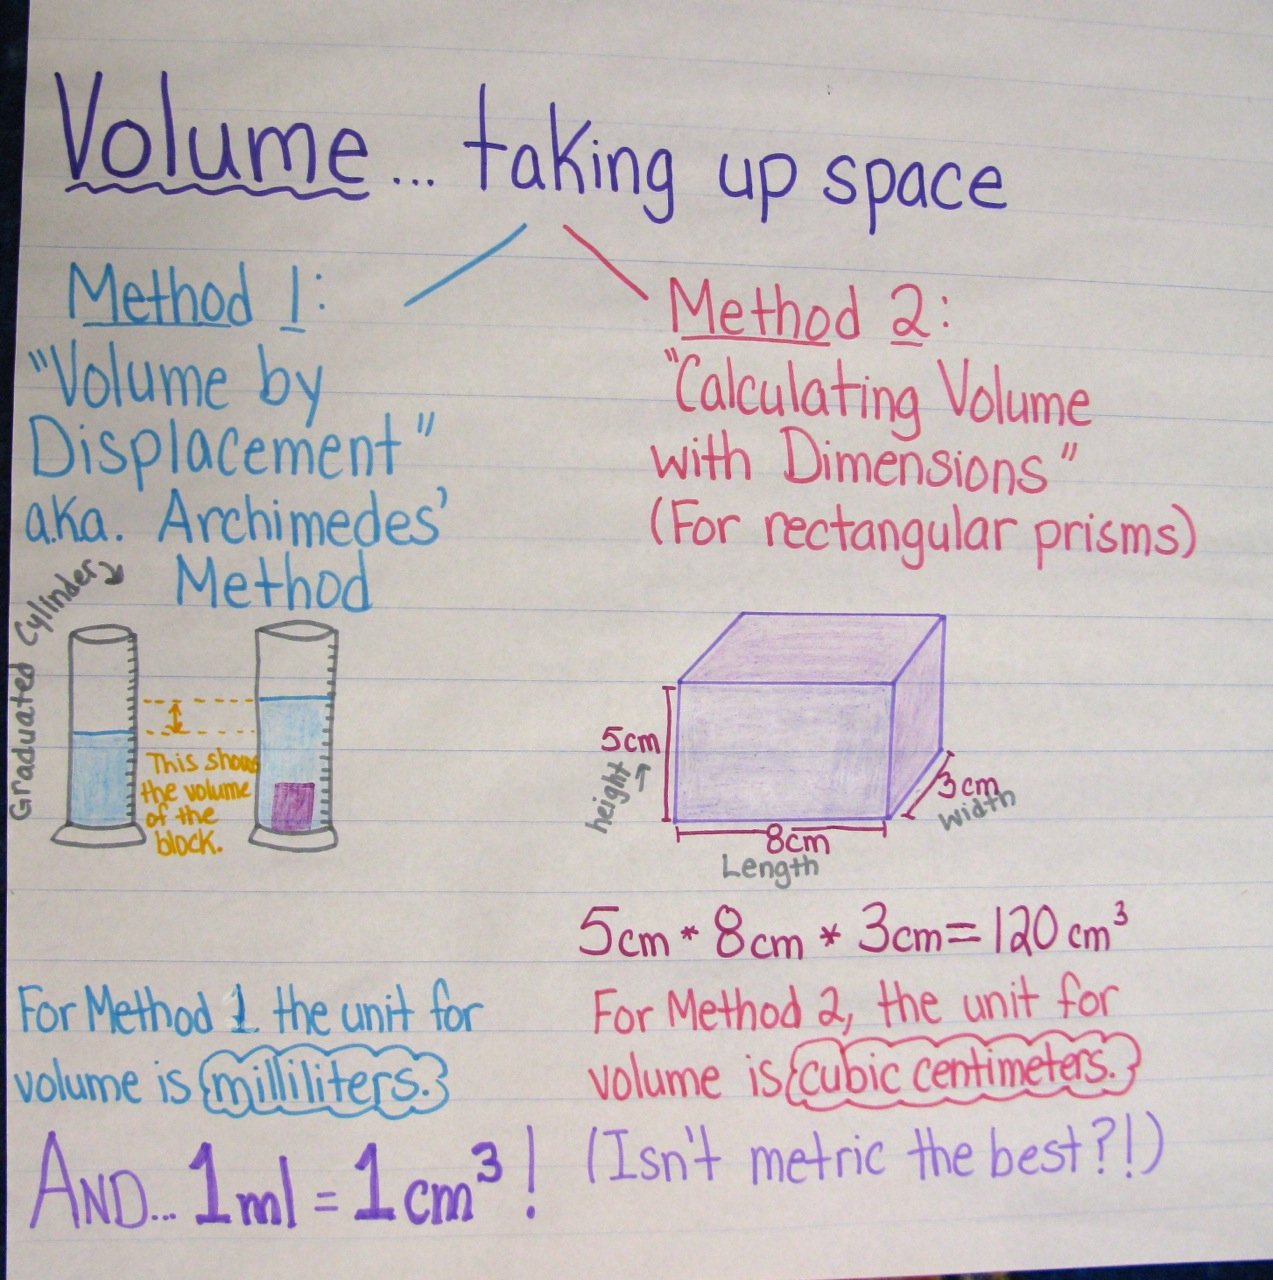 Volume... taking up space
Method 1:
"Volume by
Displacement"
a.k.a. Archimedes'
Method
Graduated Cylinder
This shows
the volume
of the
block.
For Method 1 the unit for
volume is milliliters.
Method 2:
"Calculating Volume
with Dimensions"
(For rectangular prisms)
5cm
height
3cm
width
8cm
Length
5cm * 8cm * 3cm = 120 cm³
For Method 2, the unit for
volume is cubic centimeters.
AND... 1ml = 1cm³!
(Isn't metric the best?!)